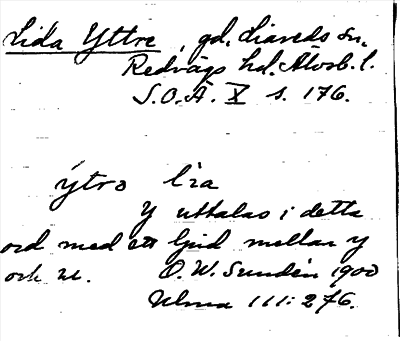 Lida Yttre, gd. Liareds sn.
Redvägs hd. Älvsb. l.
S.O.Ä. X s. 176.
ýtrə lia
Y uttalas i detta
ord med ett ljud mellan y
och u. O. W. Sundén 1900
Ulma 111:276.